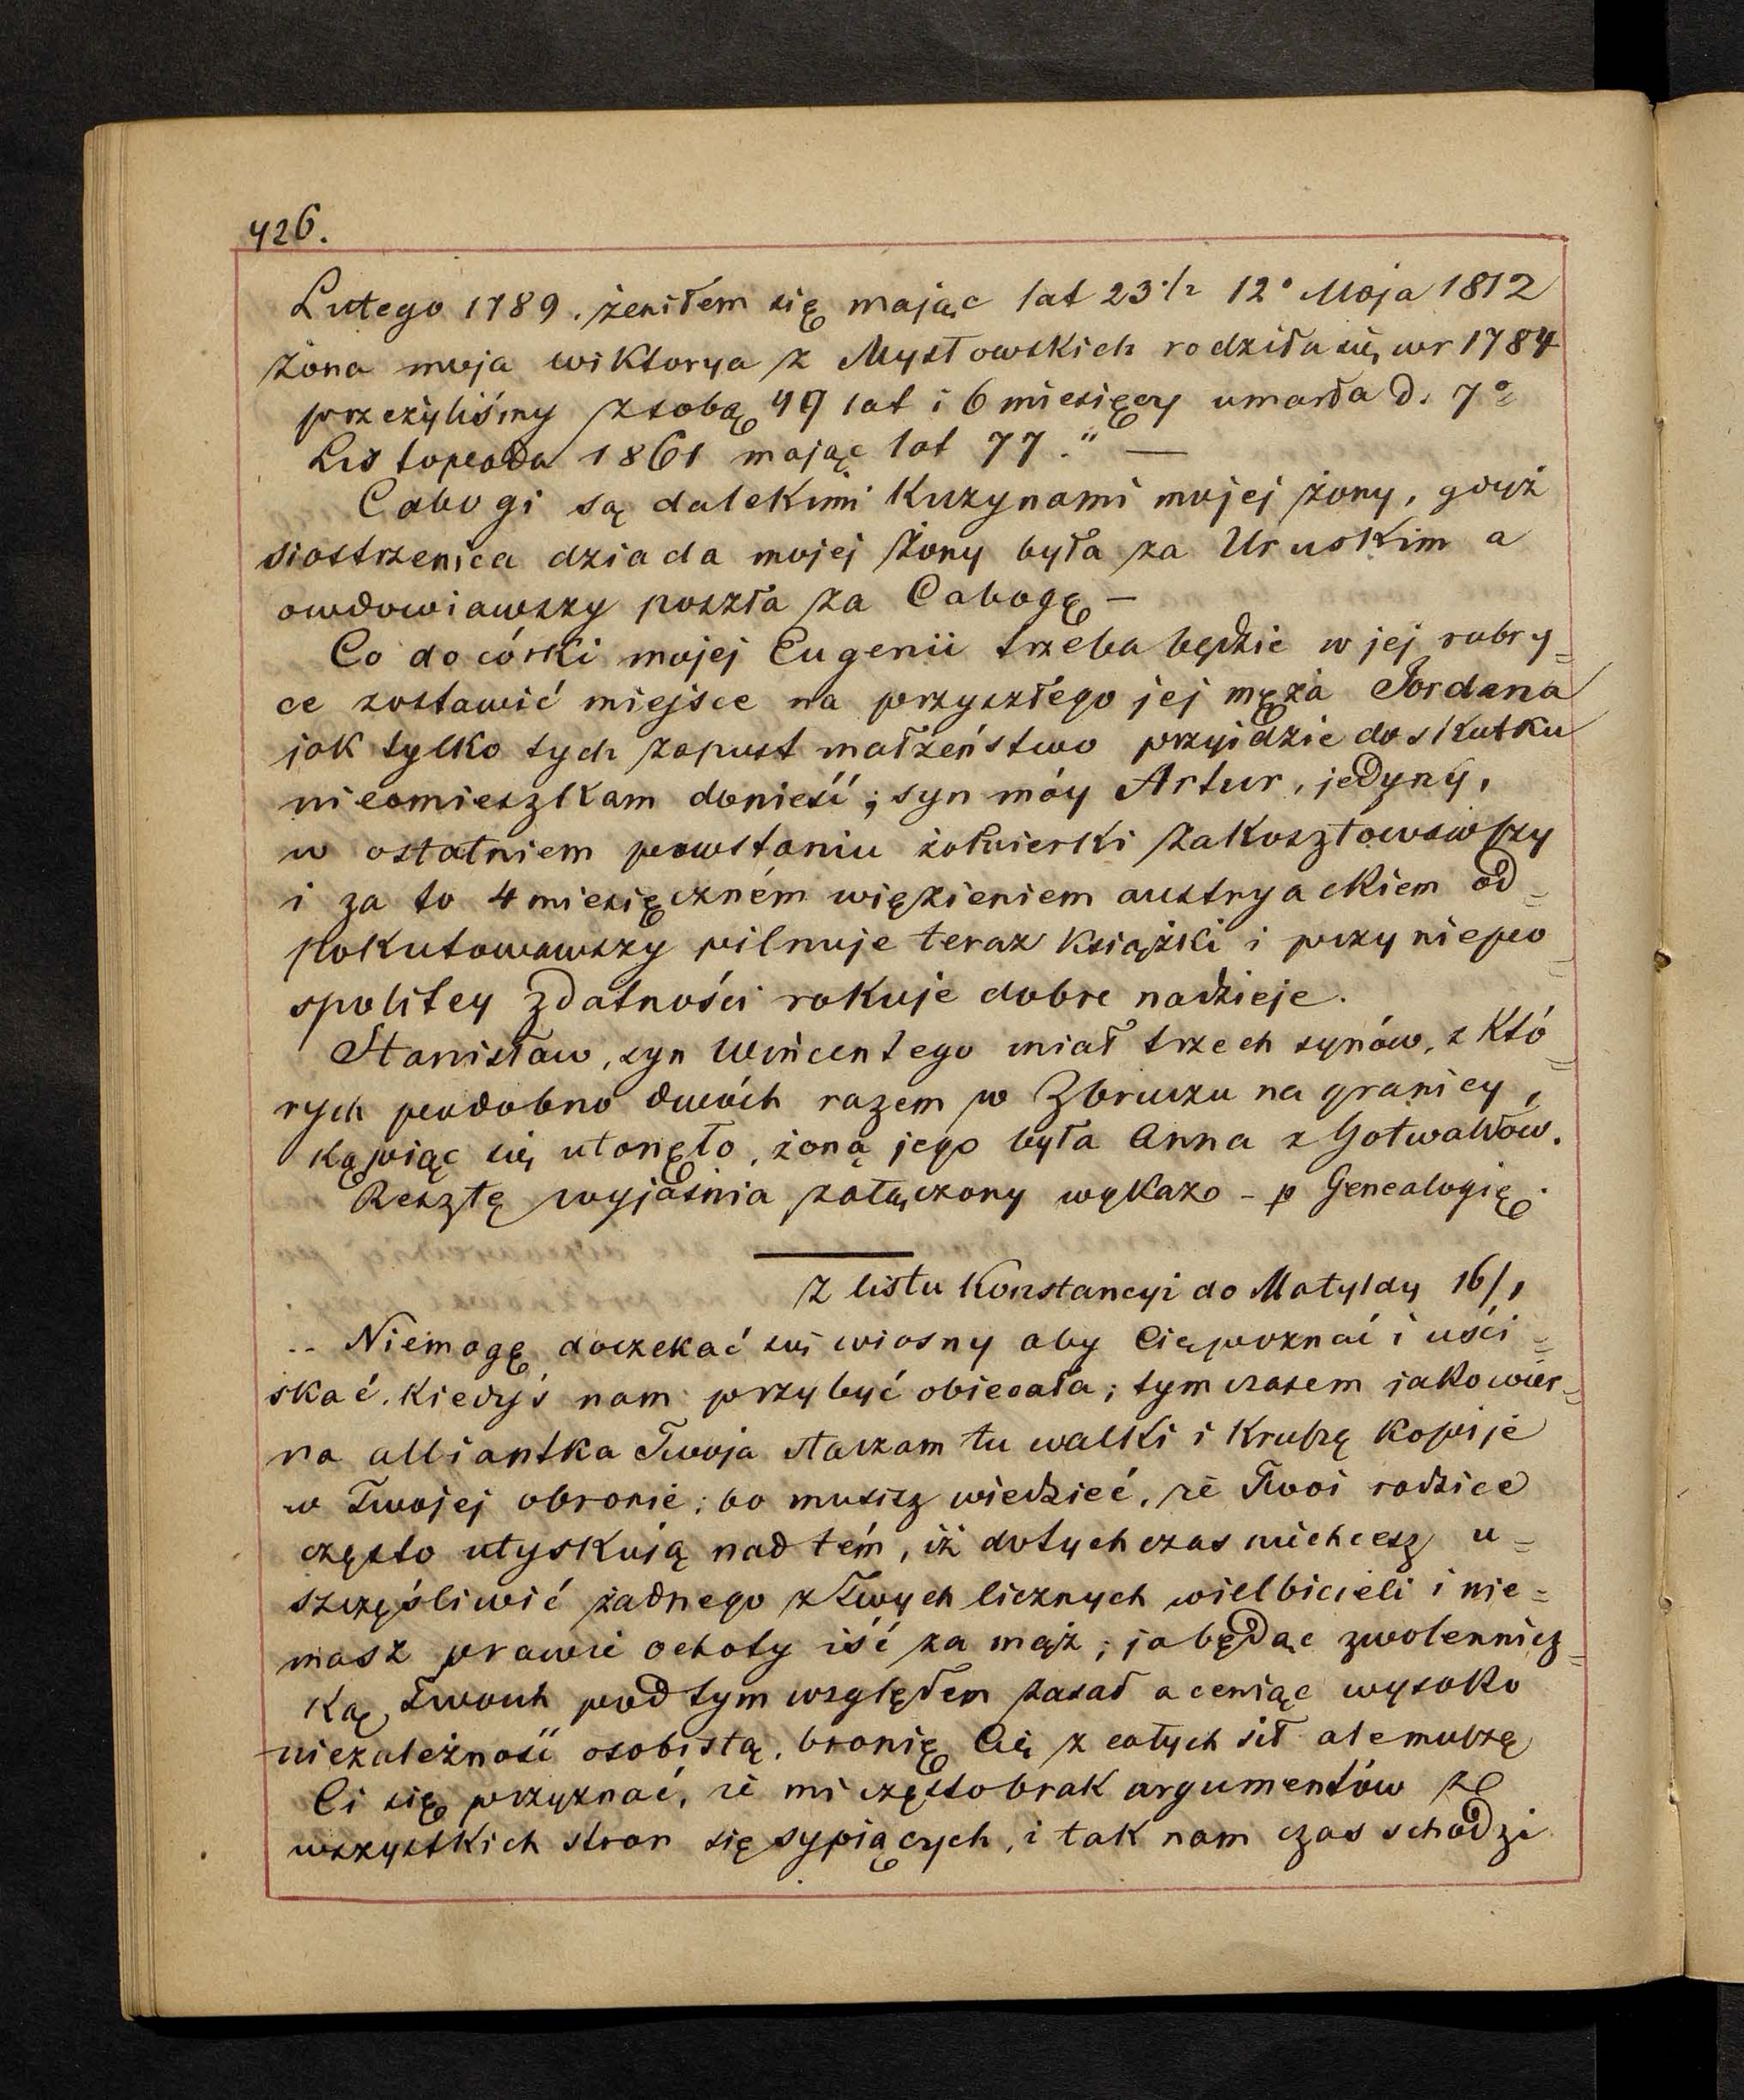 426.
Lutego 1789. żeniłem się mając lat 23 1/2 12° Maja 1812
żona moja Wiktorya z Mysłowskich rodziła się w r 1784
przeżyliśmy z sobą 49 lat i 6 miesięcy umarła d. 7°
Listopada 1861 mając lat 77." —
Cabogi są dalekimi kuzynami mojej żony, gdyż
siostrzenica dziada mojej żony była za Uruskim a
owdowiawszy poszła za Cabogę —
Co do córki mojej Eugenii trzeba będzie w jej rubry=
ce zostawić miejsce na przyszłego jej męża Jordana
jak tylko tych zapust małżeństwo przyidzie do skutku
nieomieszkam donieść; syn móy Artur, jedyny,
w ostatniem powstaniu żołnierki zakosztowawszy
i za to 4 miesięczném więzieniem austryackiem od=
pokutowawszy pilnuje teraz książki i przy niepo=
spolitey zdatności rokuje dobre nadzieje.
Stanisław, syn Wincentego miał trzech synów, z któ=
rych podobno dwóch razem w Zbruczu na granicy,
kąpiąc się utonęło, żoną jego była Anna z Gotwaldów.
Resztę wyjaśnia załączony wykaz - p Genealogię.
Z listu Konstancyi do Matyldy 16/1
.. Niemogę doczekać się wiosny aby Cię poznać i uści=
skać. Kiedyś nam przybyć obiecała; tymczasem jako wier=
na alliantka Twoja staczam tu walki i kruszę kopije
w Twojej obronie; bo musisz wiedzieć, że Twoi rodzice
często utyskują nad tém, iż dotychczas niechcesz u=
szczęśliwić żadnego z Twych licznych wielbicieli i nie=
masz prawie ochoty iść za mąż; ja będąc zwolennicz=
ką Twoich pod tym względem zasad a ceniąc wysoko
niezależność osobistą, bronię Cię z całych sił ale muszę
Ci się przyznać, że mi często brak argumentów ze
wszystkich stron się sypiących, i tak nam czas schodzi